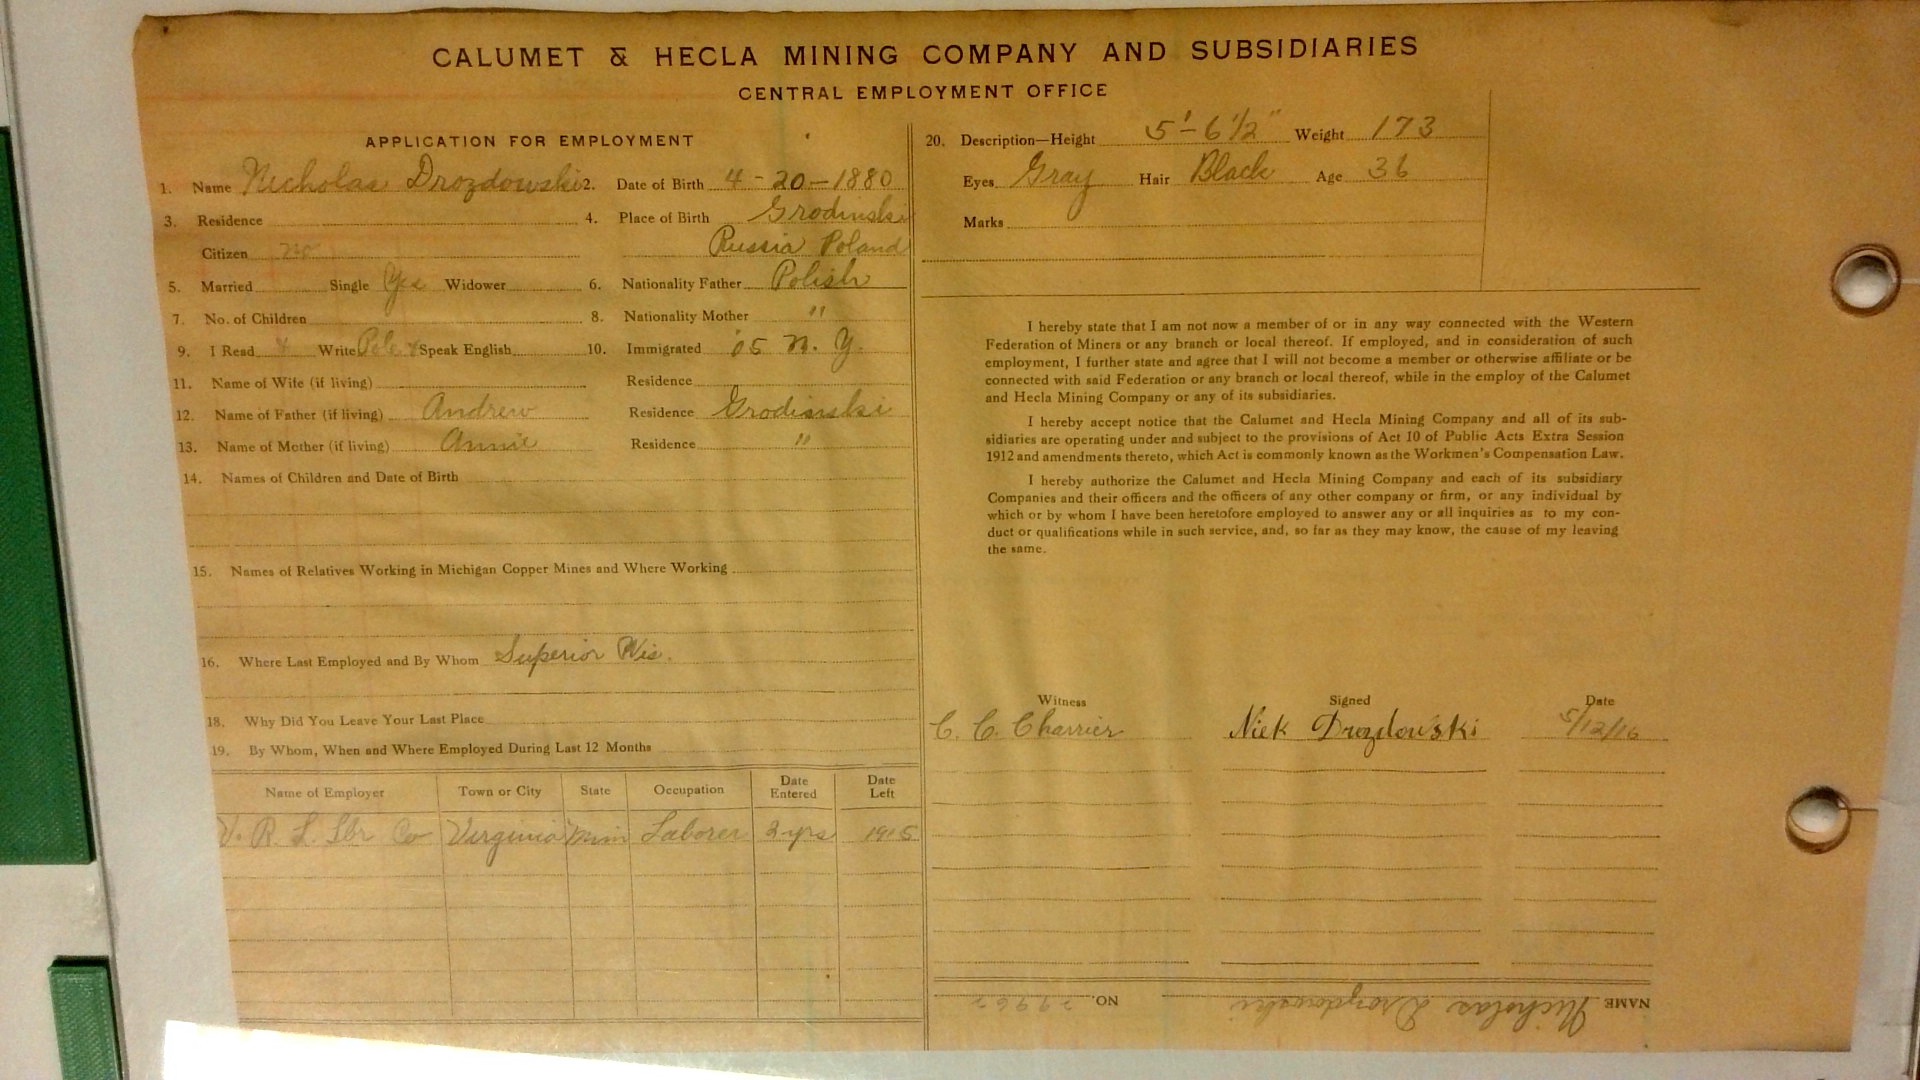 CALUMET & HECLA MINING COMPANY AND SUBSIDIARIES
CENTRAL EMPLOYMENT OFFICE
APPLICATION FOR EMPLOYMENT
1. Name Nicholas Drozdowski 2. Date of Birth 4-20-1880
3. Residence 4. Place of Birth Grodinski
Citizen no Russia Poland
5. Married Single Yes Widower 6. Nationality Father Polish
7. No. of Children 8. Nationality Mother "
9. I Read Write Pole Speak English 10. Immigrated '05 N. Y.
11. Name of Wife (if living) Residence
12. Name of Father (if living) Andrew Residence Grodinski
13. Name of Mother (if living) Annie Residence "
14. Names of Children and Date of Birth
15. Names of Relatives Working in Michigan Copper Mines and Where Working
16. Where Last Employed and By Whom Superior Wis.
18. Why Did You Leave Your Last Place
19. By Whom, When and Where Employed During Last 12 Months
Name of Employer Town or City State Occupation Date Entered Date Left
V. R. L. Lbr Co Virginia Minn Laborer 2 yrs 1915
20. Description—Height 5'-6 1/2" Weight 173
Eyes Gray Hair Black Age 36
Marks
I hereby state that I am not now a member of or in any way connected with the Western
Federation of Miners or any branch or local thereof. If employed, and in consideration of such
employment, I further state and agree that I will not become a member or otherwise affiliate or be
connected with said Federation or any branch or local thereof, while in the employ of the Calumet
and Hecla Mining Company or any of its subsidiaries.
I hereby accept notice that the Calumet and Hecla Mining Company and all of its sub-
sidiaries are operating under and subject to the provisions of Act 10 of Public Acts Extra Session
1912 and amendments thereto, which Act is commonly known as the Workmen's Compensation Law.
I hereby authorize the Calumet and Hecla Mining Company and each of its subsidiary
Companies and their officers and the officers of any other company or firm, or any individual by
which or by whom I have been heretofore employed to answer any or all inquiries as to my con-
duct or qualifications while in such service, and, so far as they may know, the cause of my leaving
the same.
Witness Signed Date
C. C. Charrier Nick Drozdowski 5/12/16
NAME Nicholas Drozdowski NO.